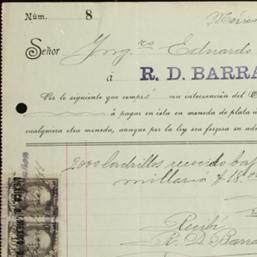 Núm. 8
Méxi
Señor Yng.ro Eduardo
á R. D. BARRA
Por lo siguiente que compró con intervencion del C
á pagar en ista en moneda de plata
cualquera otra moneda, aunque por la ley sea forzosa su ad
2000 ladrillos recocido
millaria $ 18.00
Recibí
R. D. Barra